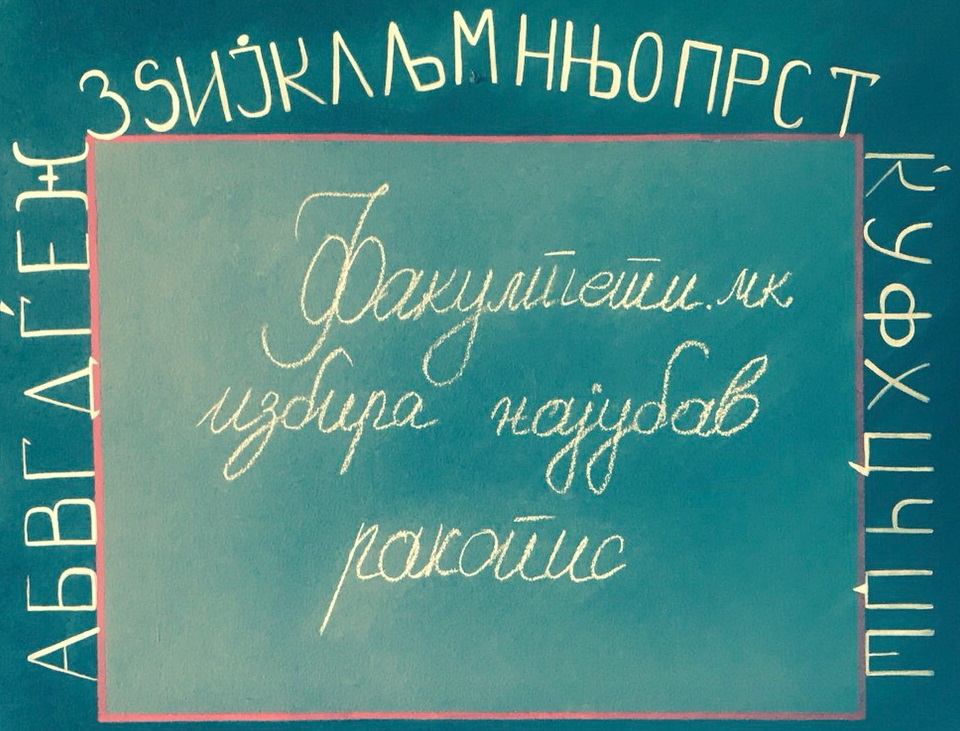 АБВГДЃЕЖ
ЗЅИЈКЛЉМНЊОПРСТ
ЌУФХЦЧЏШ
Факултети.мк
избира најубав
ракопис